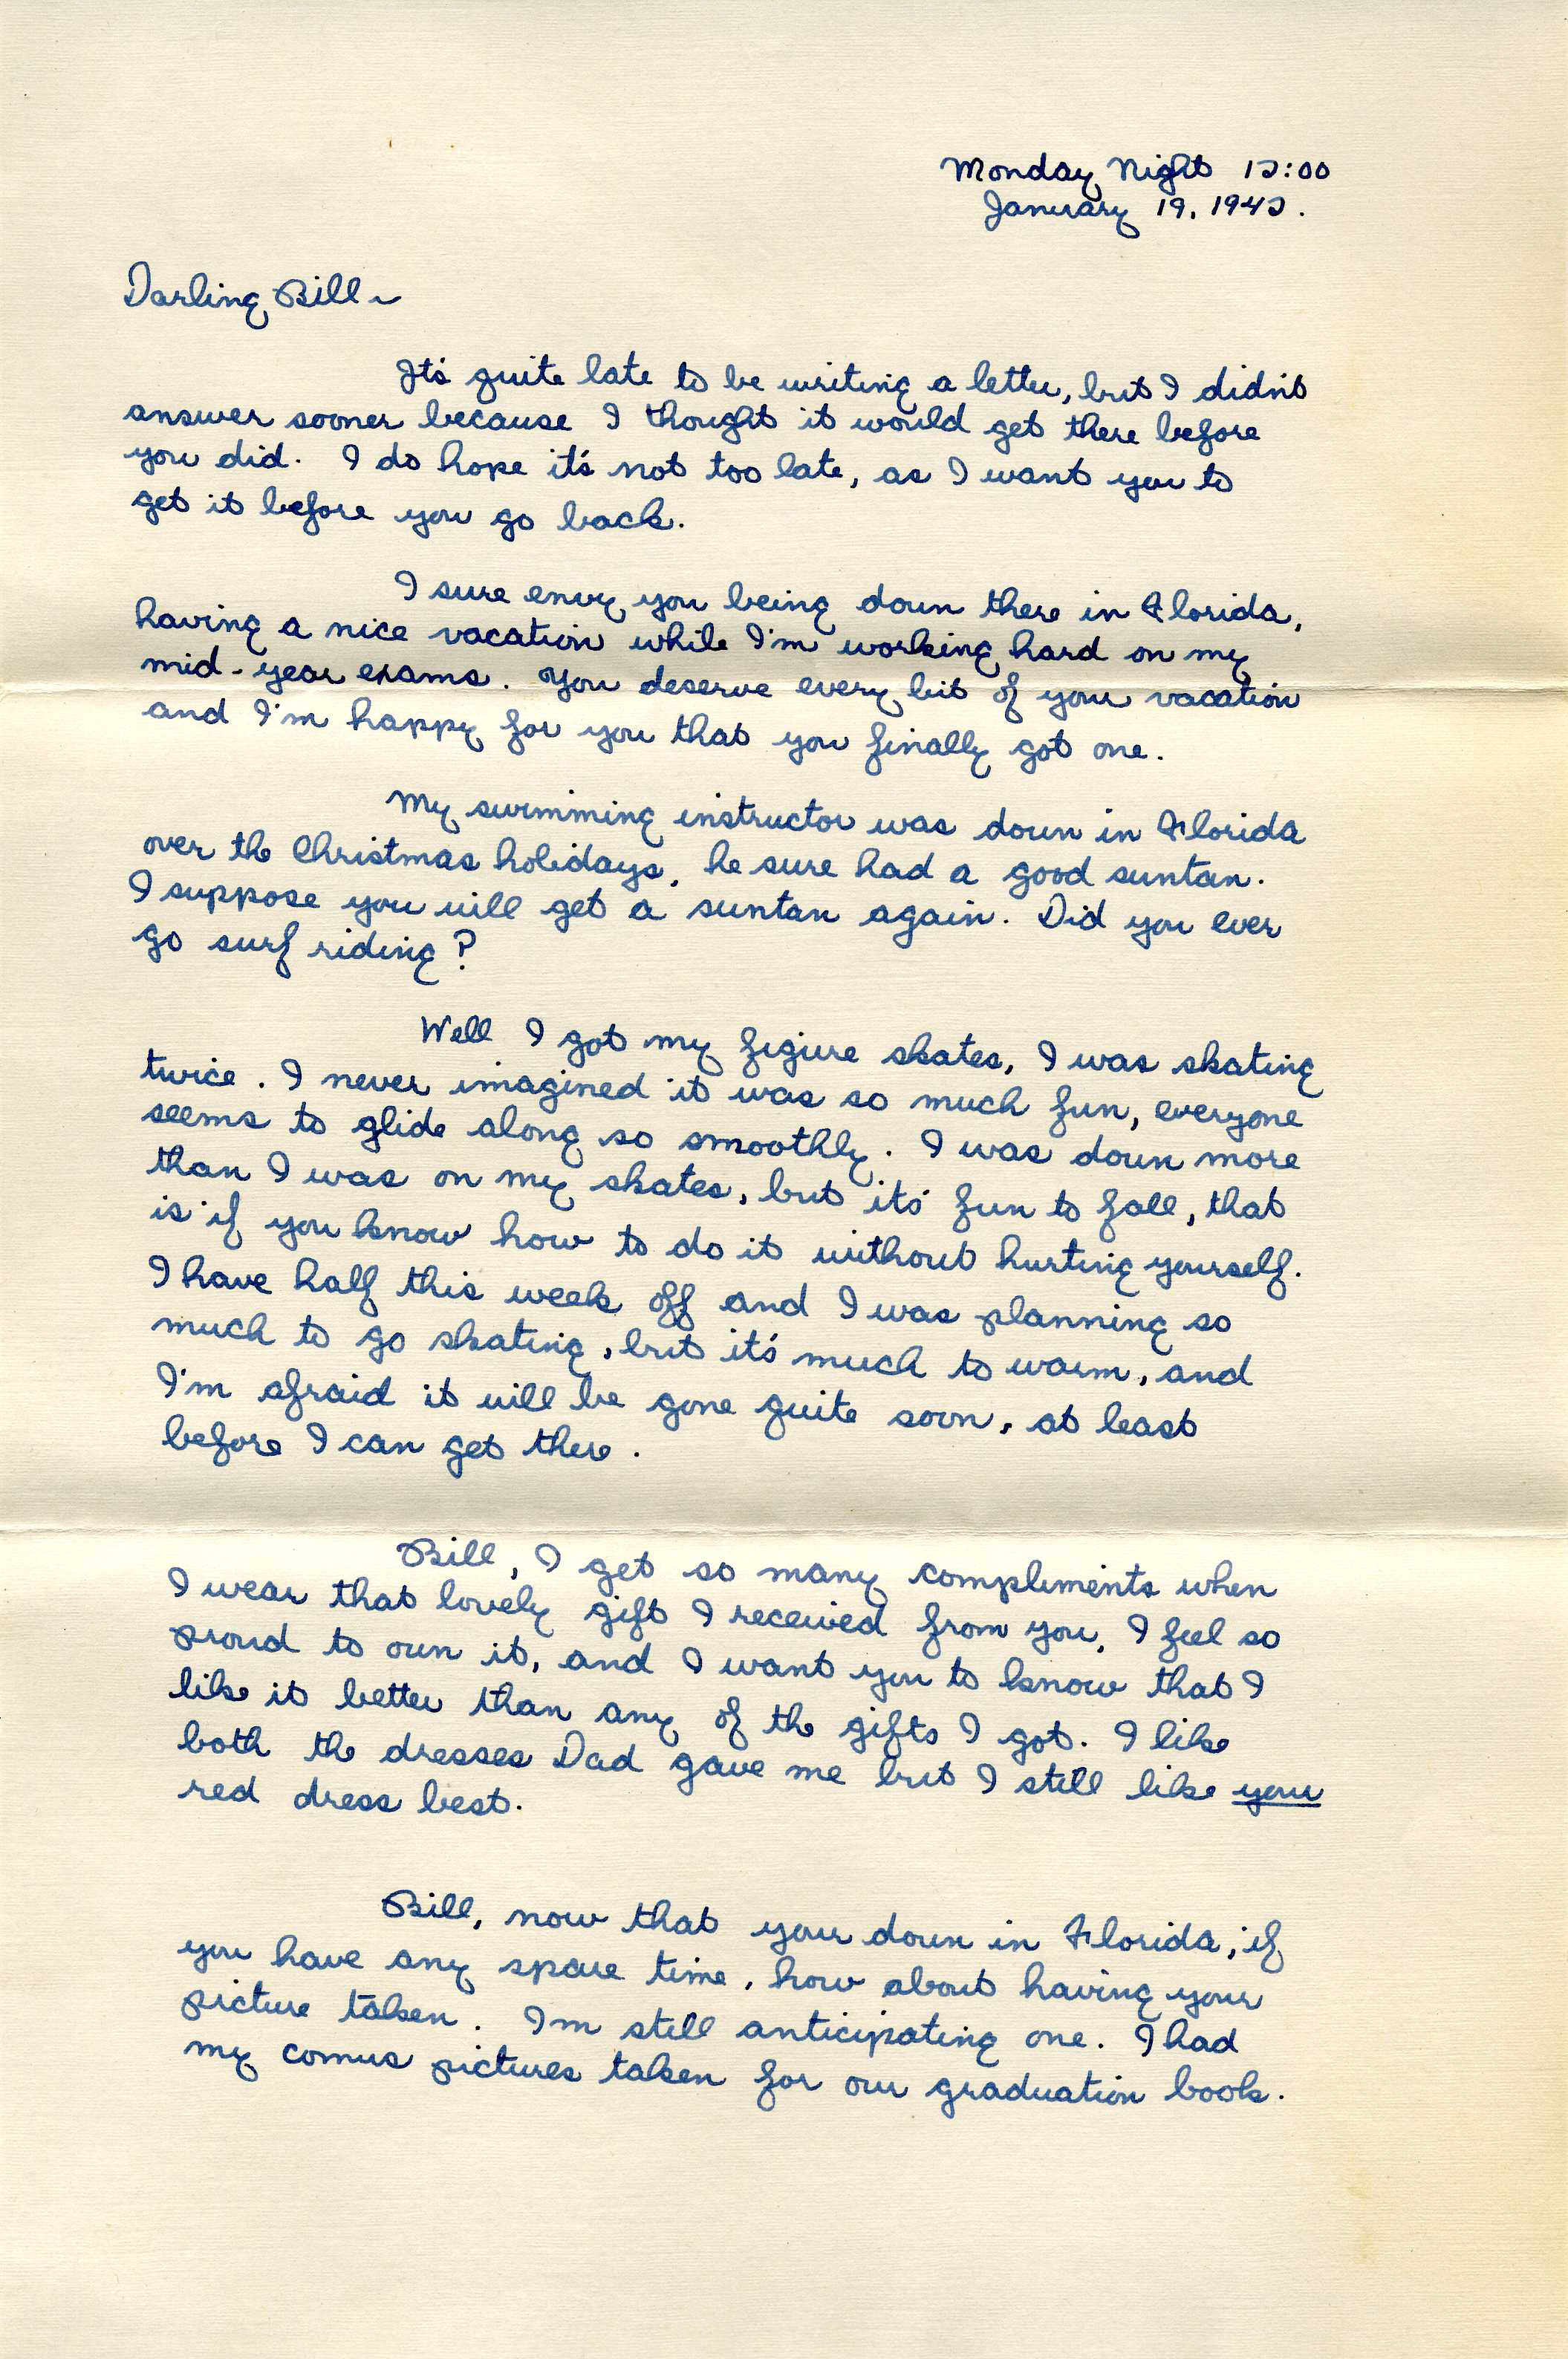 Monday Night 12:00
January 19, 1942.
Darling Bill ~
It's quite late to be writing a letter, but I didn't
answer sooner because I thought it would get there before
you did. I do hope it's not too late, as I want you to
get it before you go back.
I sure envy you being down there in Florida,
having a nice vacation while I'm working hard on my
mid-year exams. You deserve every bit of your vacation
and I'm happy for you that you finally got one.
My swimming instructor was down in Florida
over the Christmas holidays, he sure had a good suntan.
I suppose you will get a suntan again. Did you ever
go surf riding?
Well I got my figure skates, I was skating
twice. I never imagined it was so much fun, everyone
seems to glide along so smoothly. I was down more
than I was on my skates, but it's fun to fall, that
is if you know how to do it without hurting yourself.
I have half this week off and I was planning so
much to go skating, but it's much to warm, and
I'm afraid it will be gone quite soon, at least
before I can get there.
Bill, I get so many compliments when
I wear that lovely gift I received from you, I feel so
proud to own it, and I want you to know that I
like it better than any of the gifts I got. I like
both the dresses Dad gave me but I still like your
red dress best.
Bill, now that your down in Florida, if
you have any spare time, how about having your
picture taken. I'm still anticipating one. I had
my comus pictures taken for our graduation book.